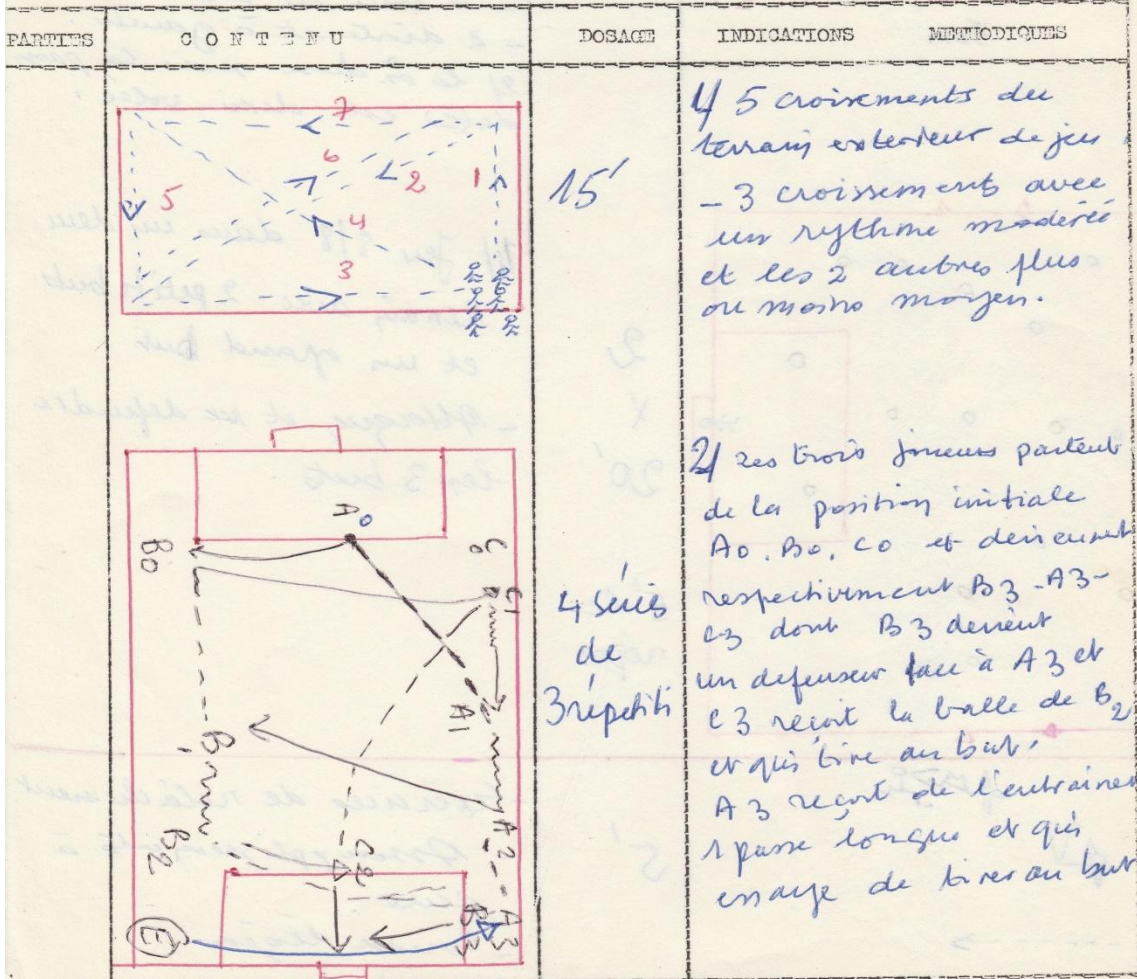 PARTIES CONTENU DOSAGE INDICATIONS METHODIQUES
7
6
2
1
5
4
3
15'
1/ 5 croisements du
terrain exterieur de jeu
- 3 croissements avec
un rythme modérée
et les 2 autres plus
ou moins moyen.
A0
B0
C0
C1
A1
B1
B2
A2
C2
A3
B3
E
4 séries
de
3 répétiti
2/ Les trois joueurs partent
de la position initiale
A0. B0. C0 et deviennent
respectivement B3 - A3 -
C3 dont B3 devient
un defenseur face à A3 et
C3 reçoit la balle de B2
et qui tire au but.
A3 reçoit de l'entraineur
1 passe longue et qui
essaye de tirer au but